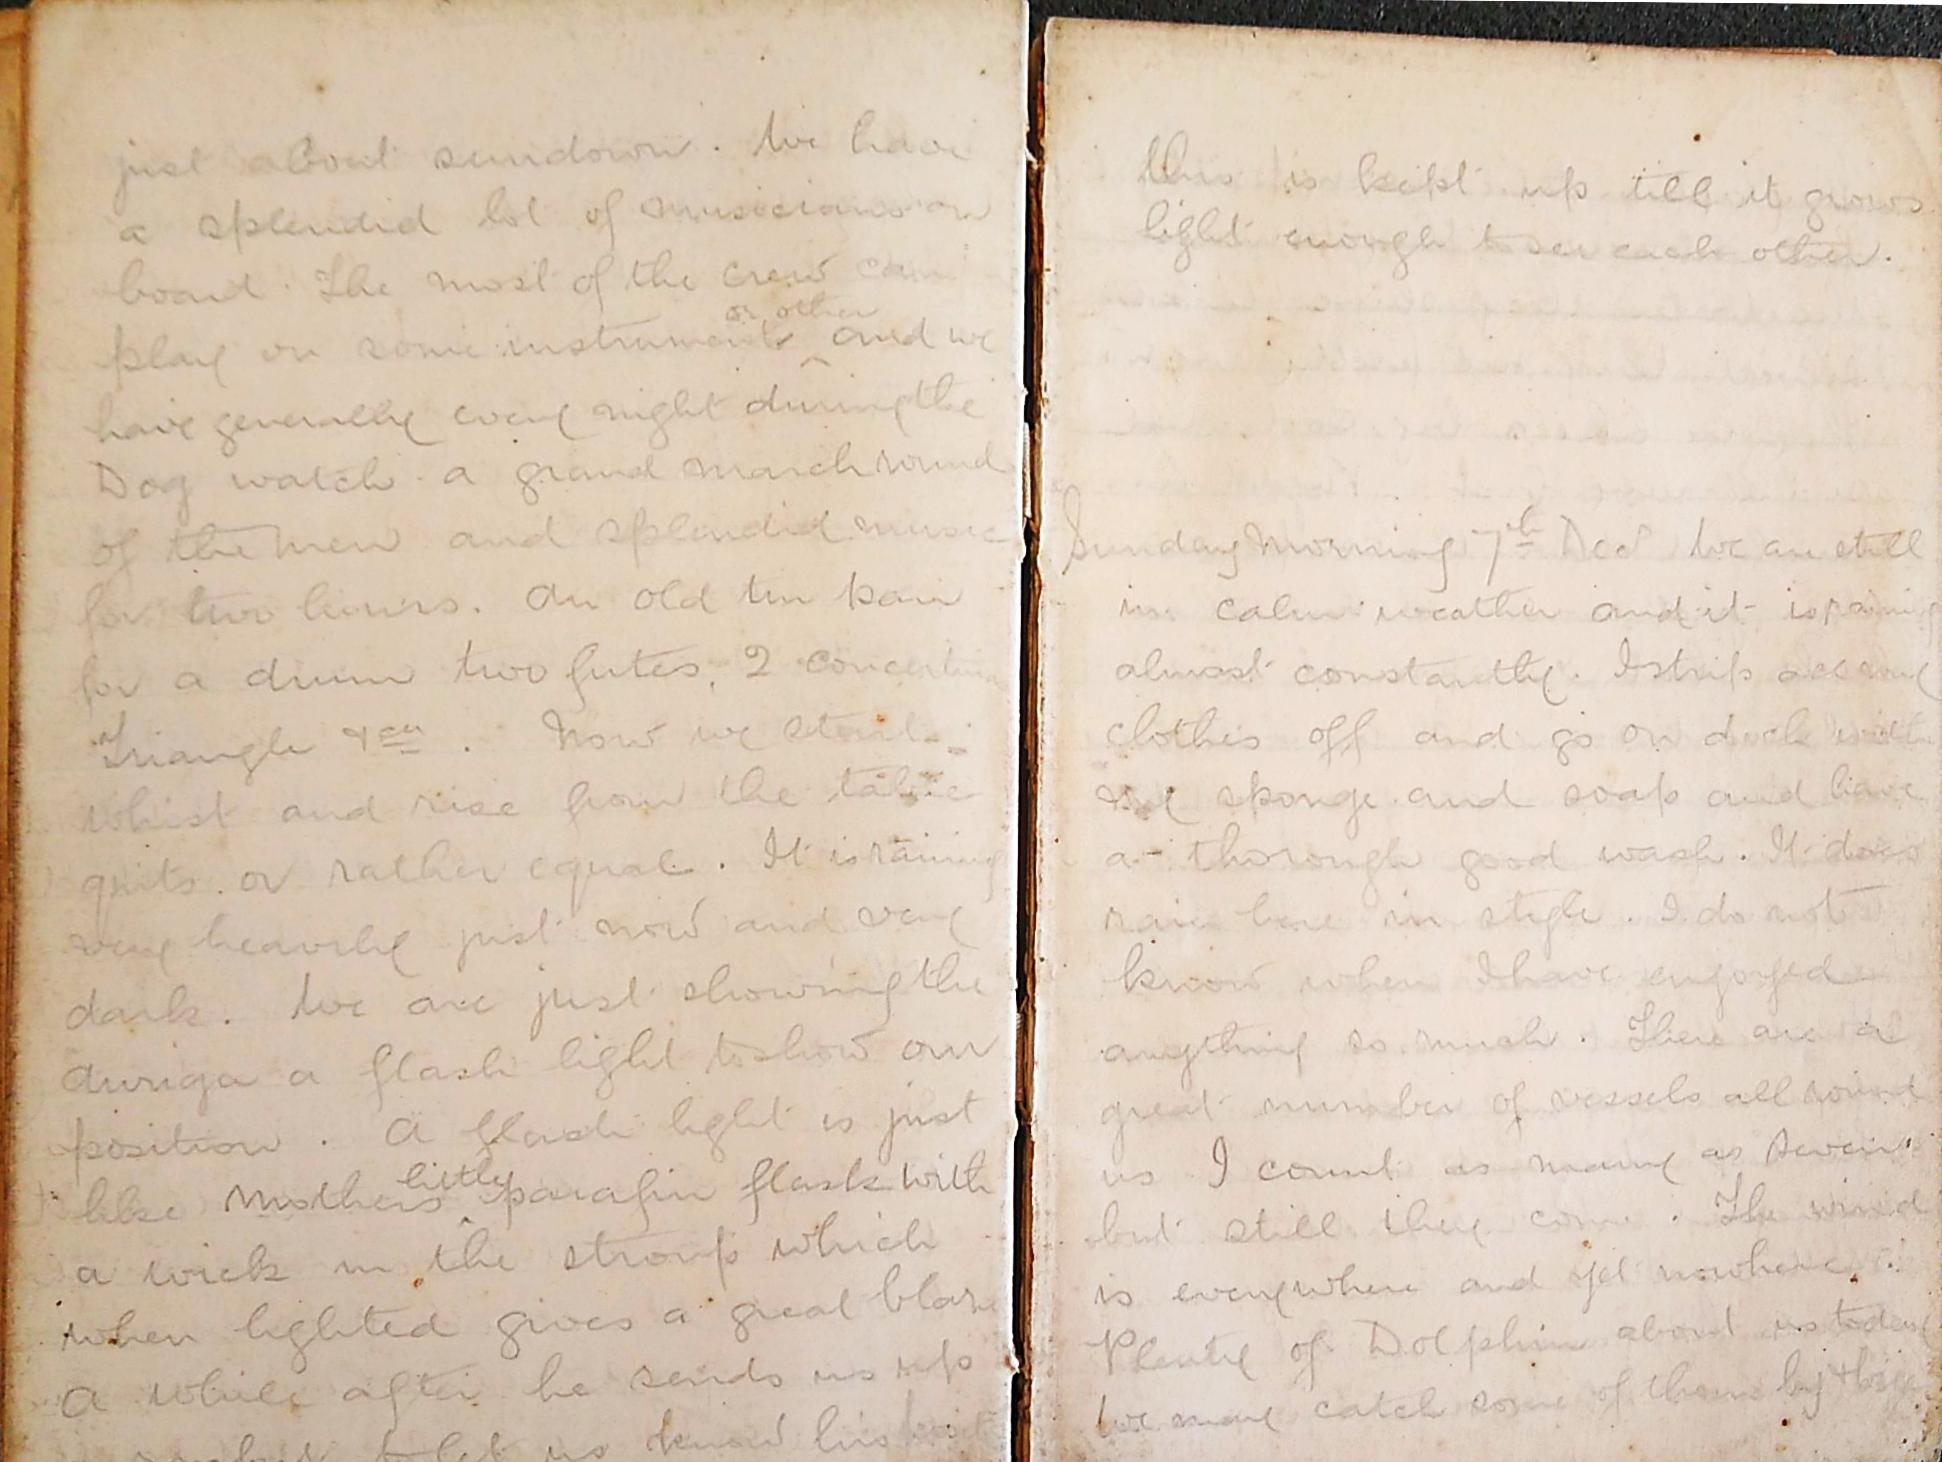 just about sundown. We have
a splendid lot of musicians on
board. The most of the crew can
play on some instruments or other and we
have generally every night during the
Dog watch a grand march round
of the men and splendid music
for two hours. An old tin pan
for a drum two futes, 2 concertina
Triangle &c. Now we start
whist and rise from the table
quits or rather equal. It is raining
very heavily just now and very
dark. We are just showing the
a flash light to show our
position. A flash light is just
like Mothers little parafin flask with
a wick in the stroup which
when lighted gives a great blaze
A while after he sends us up
a to let us know his
this is kept up till it grows
light enough to see each other.
Sunday Morning 7th Dec We are still
in calm weather and it is raining
almost constantly. I strip all my
clothes off and go on deck with
my sponge and soap and have
a thorough good wash. It does
rain here in style. I do not
know when I have enjoyed
anything so much. There are a
great number of vessels all round
us I count as many as seven
but still they come. The wind
is everywhere and yet nowhere.
Plenty of Dolphin about us today
We may catch some of them by &